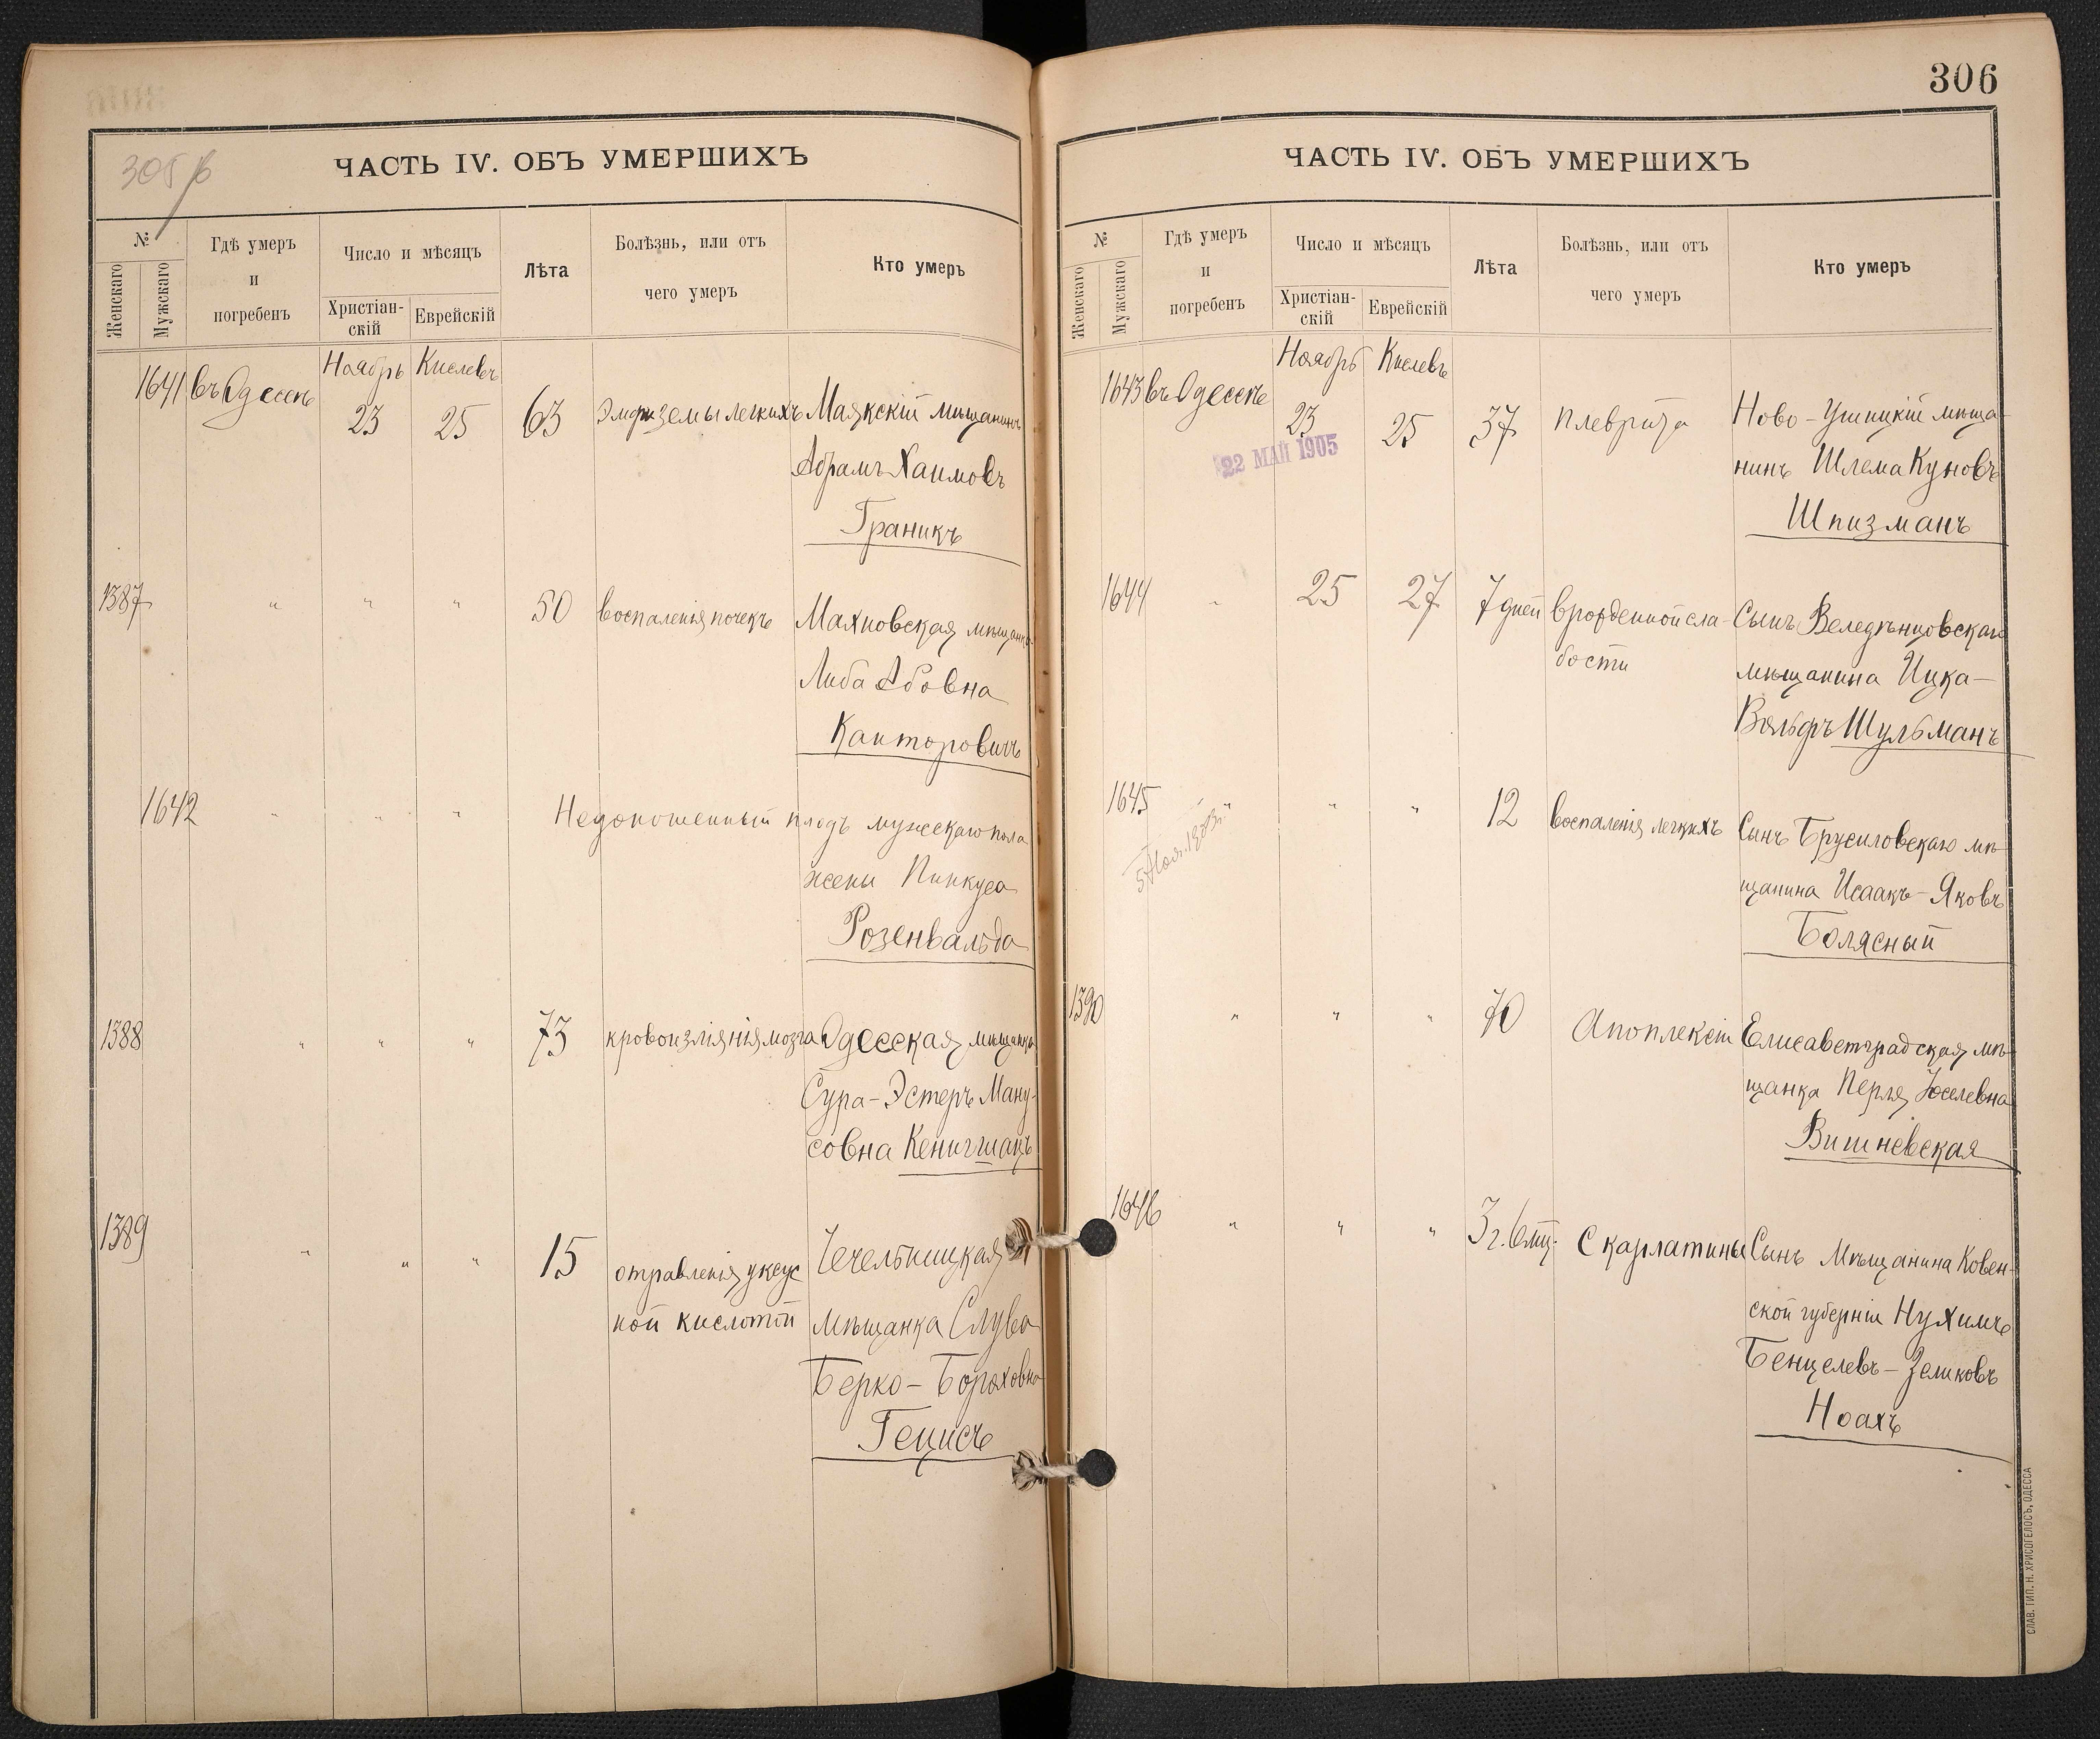 305 б
ЧАСТЬ IV. ОБЪ УМЕРШИХЪ
№
Женскаго
Мужскаго
Гдѣ умеръ
и
погребенъ
Число и мѣсяцъ
Христіан-
скій
Еврейскій
Лѣта
Болѣзнь, или отъ
чего умеръ
Кто умеръ
Ноябрь Кислевъ
1641 въ Одессѣ 23 25 63 Эмфиземы легкихъ Маякскій мѣщанинъ
Абрамъ Хаимовъ
Граникъ
1387 " " " 50 воспаленія почекъ Махновская мѣщанка
Либа Абовна
Канторовичъ
1642 " " " Недоношенный плодъ мужскаго пола
жены Пинкуса
Розенвальда
1388 " " " 73 кровоизліянія мозга Одесская мѣщанка
Сура-Эстеръ Ману-
совна Кенигшацъ
1389 " " " 15 отравленія уксус
ной кислотой
Чечельницкая
мѣщанка Слува
Берко-Бороховна
Гецисъ
306
ЧАСТЬ IV. ОБЪ УМЕРШИХЪ
№
Женскаго
Мужскаго
Гдѣ умеръ
и
погребенъ
Число и мѣсяцъ
Христіан-
скій
Еврейскій
Лѣта
Болѣзнь, или отъ
чего умеръ
Кто умеръ
Ноябрь Кислевъ
1643 въ Одессѣ 23 25 37 плеврита Ново-Ушицкій мѣща-
нинъ Шлема Куновъ
Шпизманъ
22 МАЙ 1905
1644 " 25 27 7 дней врожденной сла-
бости
Сынъ Веледнѣцовскаго
мѣщанина Ицка-
Вольфъ Шульманъ
1645 " " " 12 воспаленія легкихъ Сынъ Брусиловскаго мѣ
щанина Исаакъ-Яковъ
Болясный
1390 " " " 70 Апоплексіи Елисаветградская мѣ-
щанка Перля Іоселевна
Вишневская
1646 " " " 3 г. 6 мц. Скарлатины Сынъ Мѣщанина Ковен-
ской губерніи Нухимъ
Бенцелевъ-Зеликовъ
Ноахъ
СЛАВ. ТИП. Н. ХРИСОГЕЛОСЪ, ОДЕССА